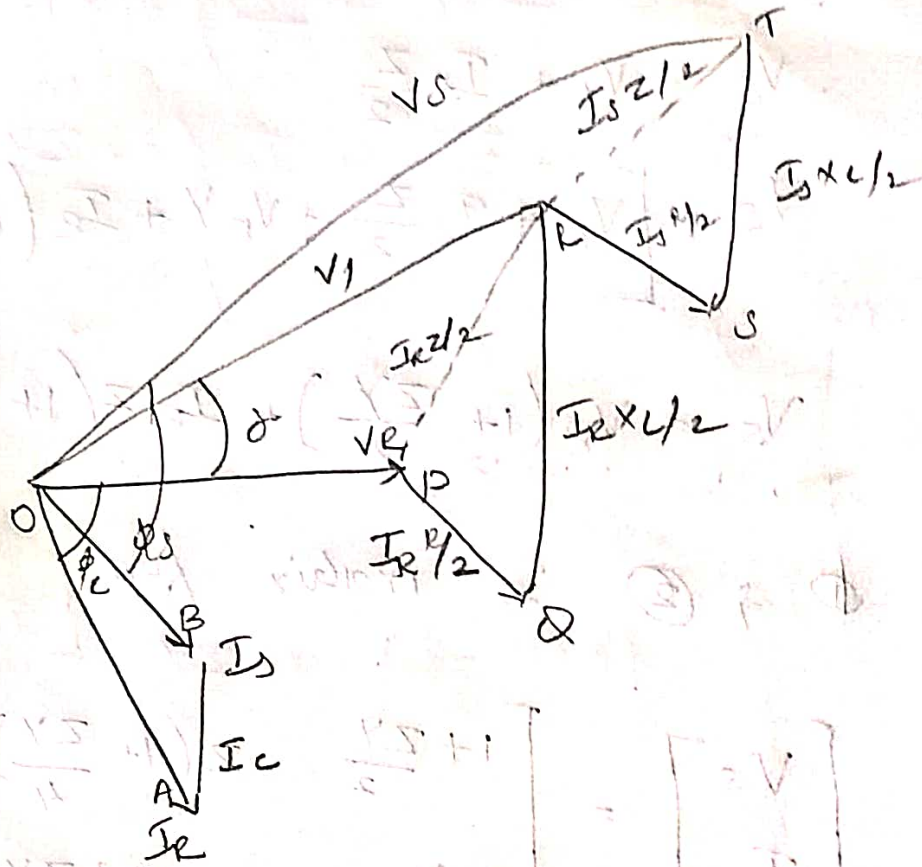 T
VS
IS Z/2
IS XL/2
V1
R
IS R/2
S
IR Z/2
IR XL/2
VR
P
O
IR R/2
Q
ϕS
B
IS
IC
A
IR